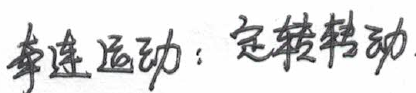 牵连运动：定转转动